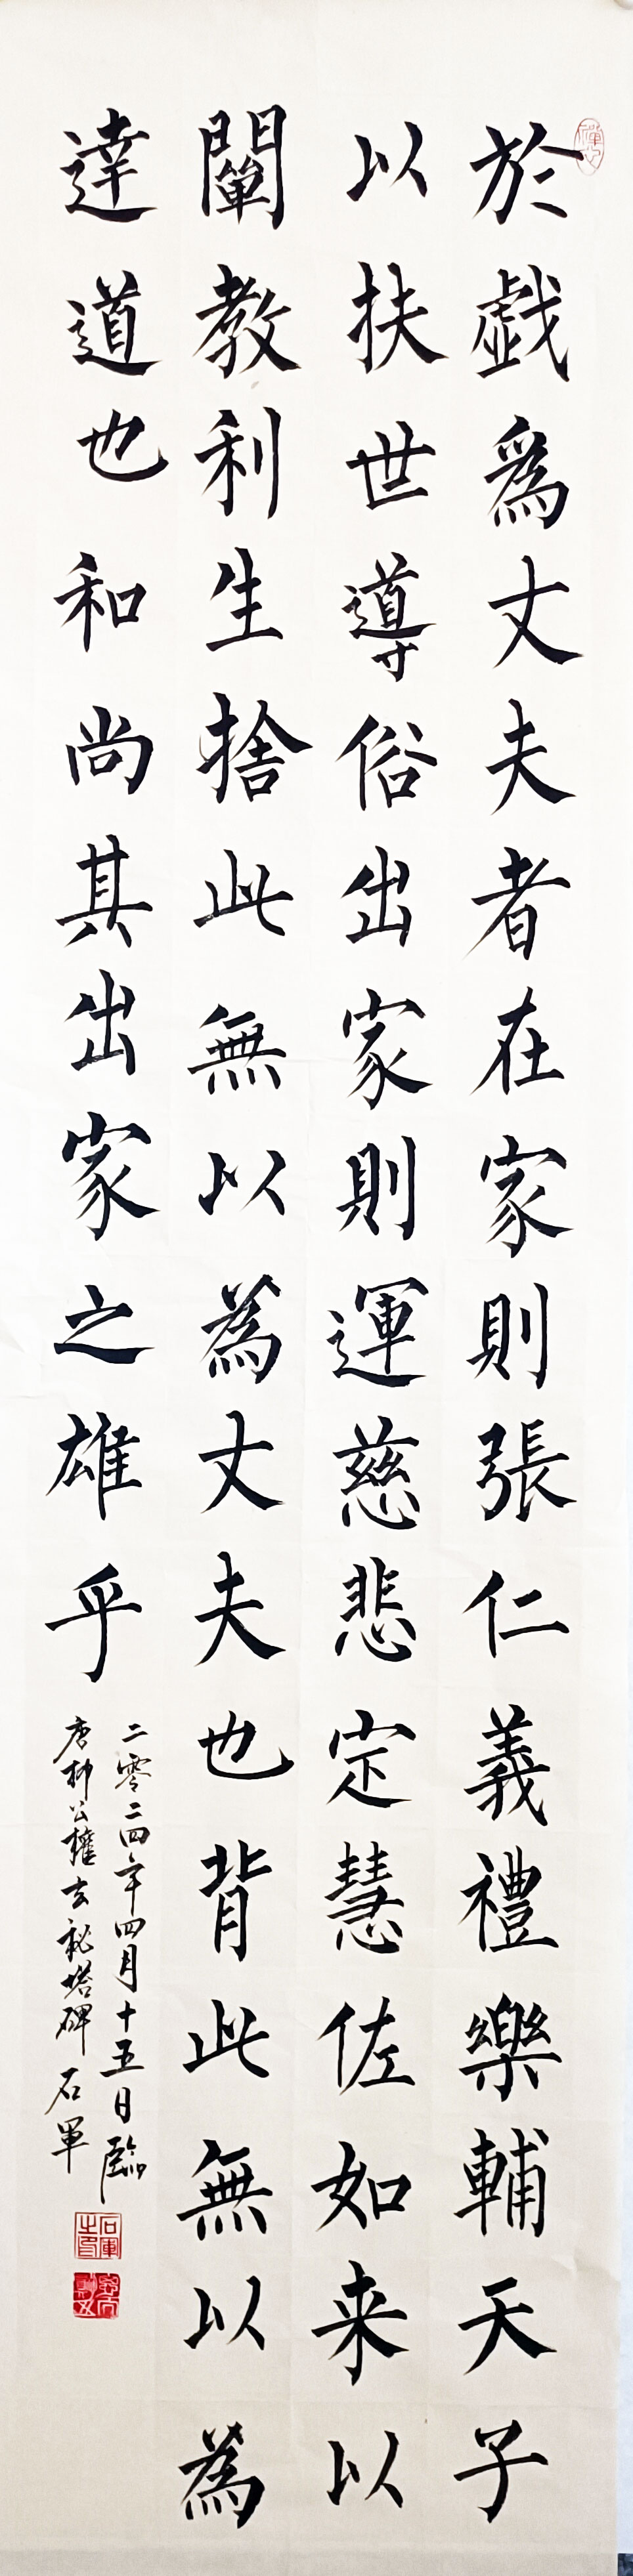 於戲爲丈夫者在家則張仁義禮樂輔天子
以扶世導俗出家則運慈悲定慧佐如来以
闡教利生捨此無以為丈夫也背此無以為
達道也和尚其出家之雄乎
二零二四年四月十五日臨
唐柳公權玄秘塔碑 石軍
石軍之印